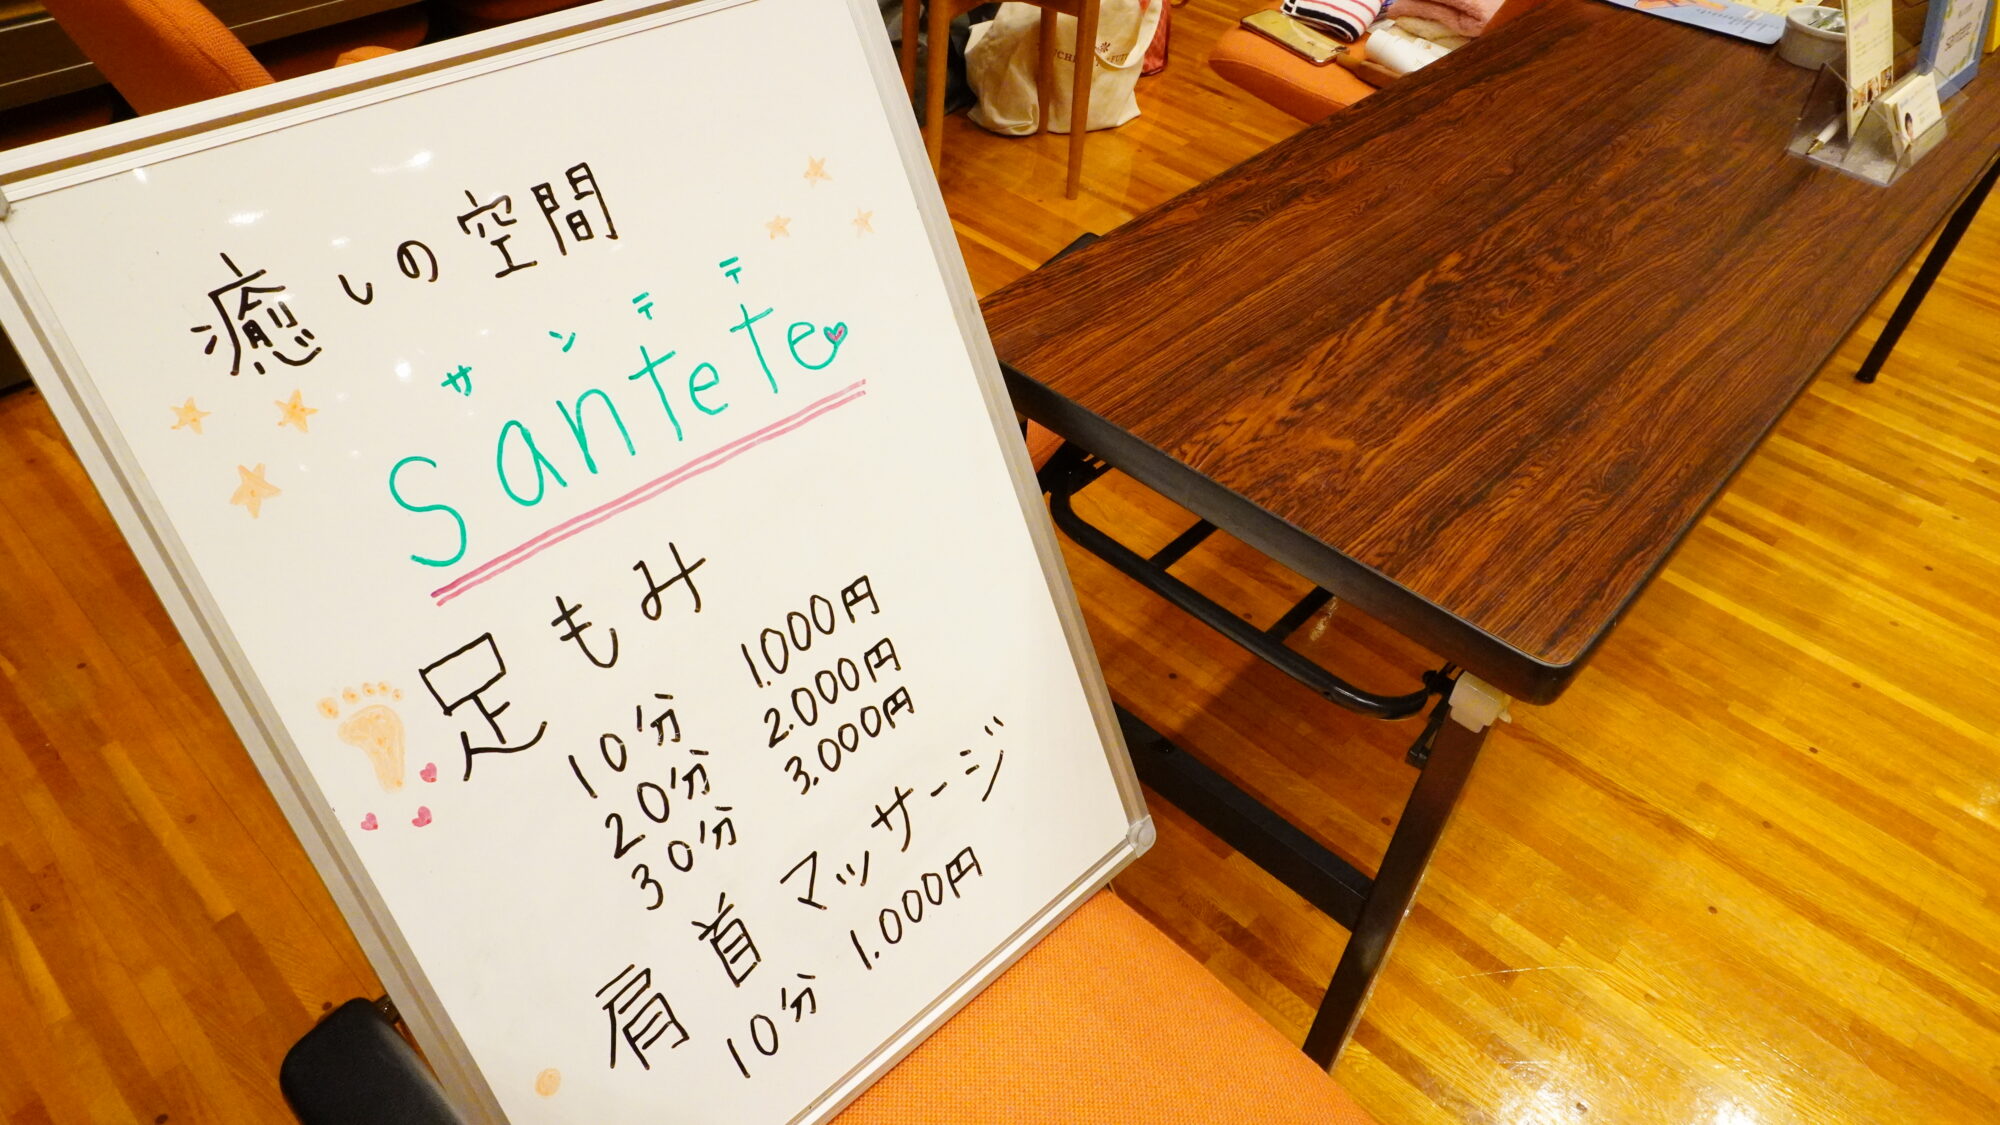 癒しの空間
サンテテ
Santete
足もみ
10分 1.000円
20分 2.000円
30分 3.000円
肩首マッサージ
10分 1.000円